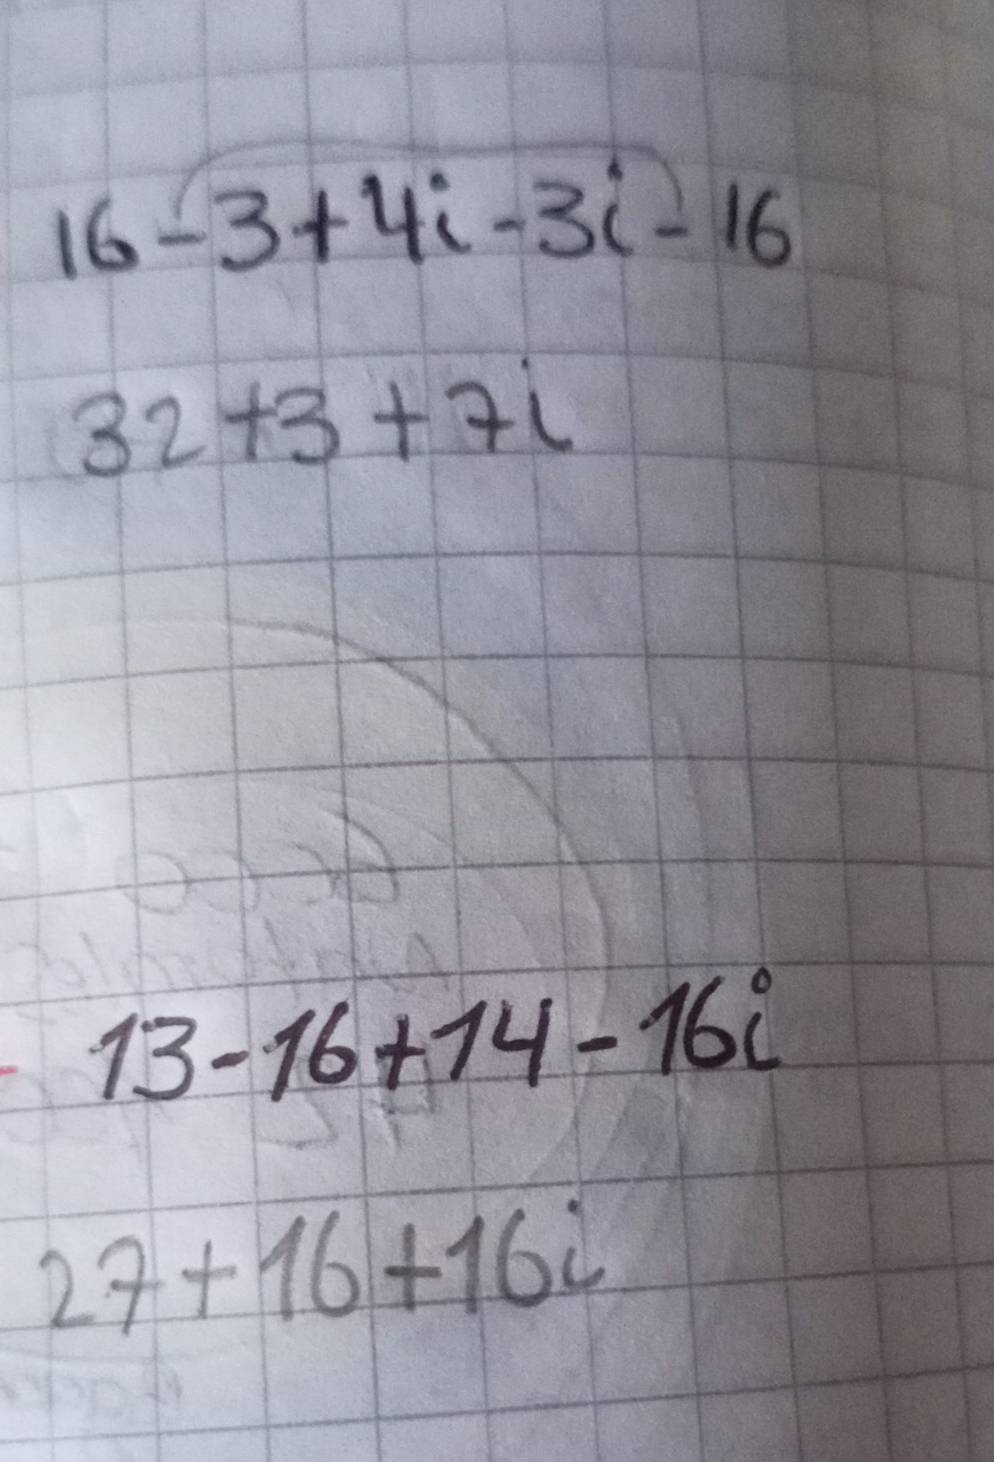 16-3+4i-3i-16
32+3+7i
13-16+14-16i
27+16+16i